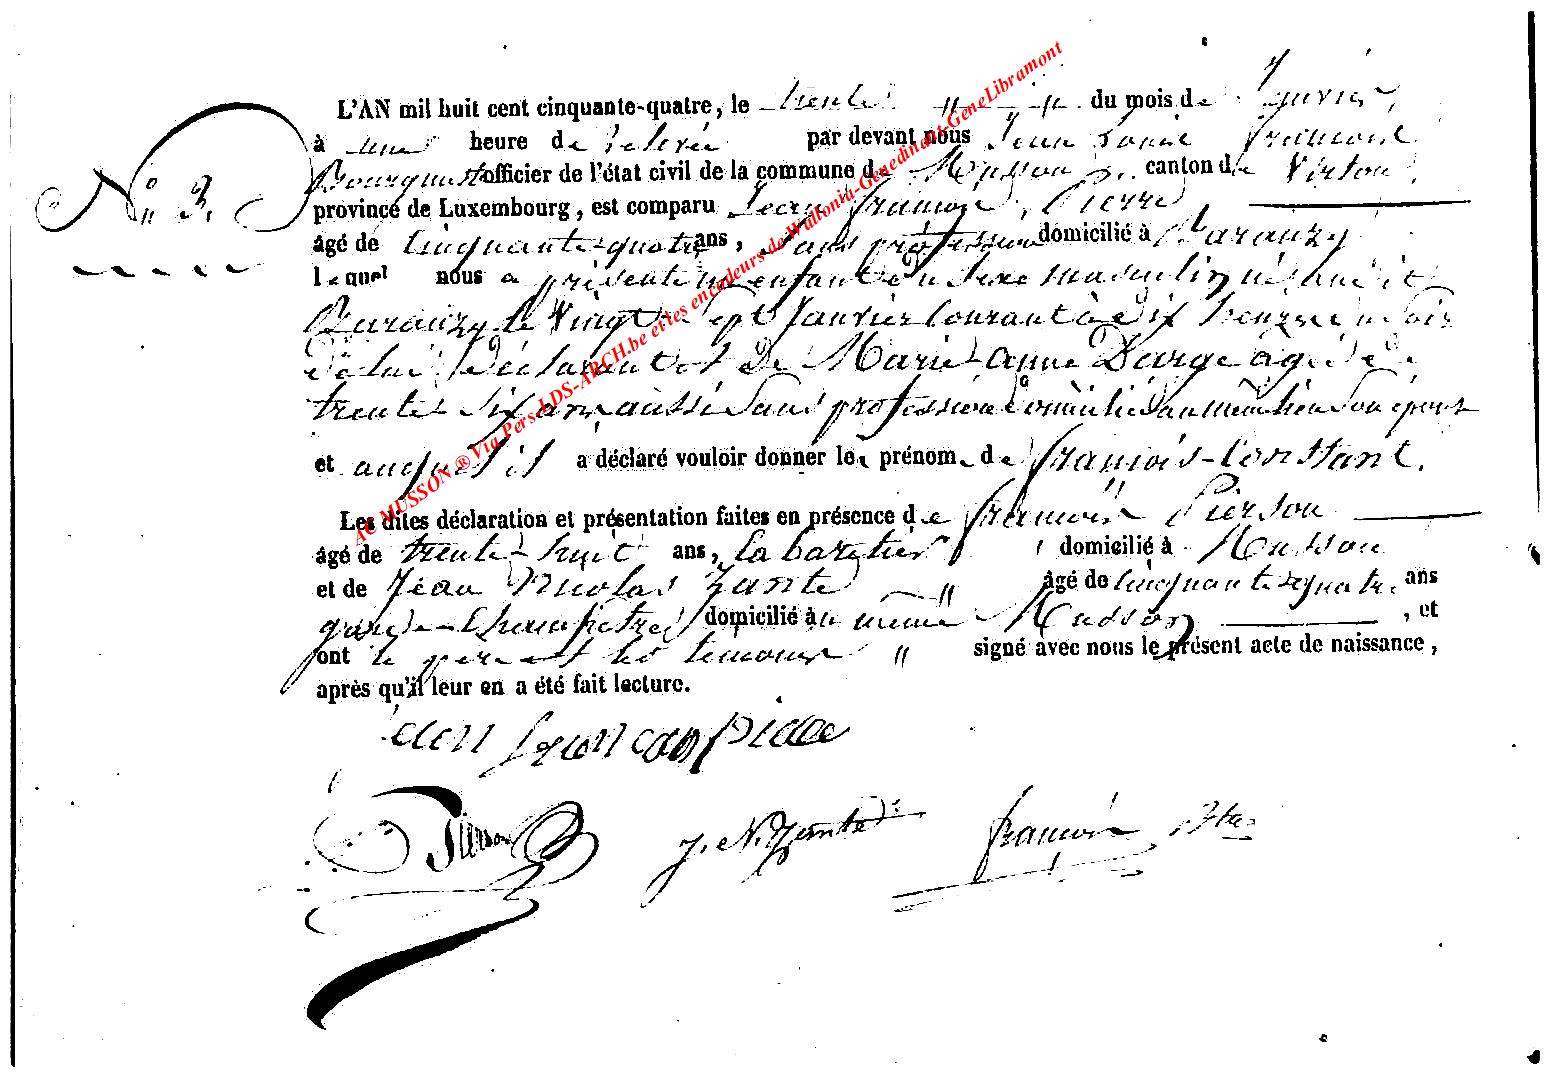 L'AN mil huit cent cinquante-quatre, le trente " " du mois de Janvier,
à une heure de relevée par devant nous Jean Louis François
N° 3. Bourguet officier de l'état civil de la commune de Musson canton de Virton,
province de Luxembourg, est comparu Jean françois, Pierre
âgé de cinquante-quatre ans, sans profession domicilié à Baranzy
lequel nous a présenté un enfant du sexe masculin né audit
Baranzy le vingt sept janvier courant à dix heures du soir
de lui déclarant et de Marie-anne Darge agée de
trente six ans aussi sans profession domiciliée au même lieu son épouse
et auquel il a déclaré vouloir donner les prénoms de françois-Constant.
Les dites déclaration et présentation faites en présence de françois Pierson
âgé de trente-huit ans, Cabaretier domicilié à Musson
et de Jean Nicolas Zante " âgé de cinquante quatre ans
garde-Champêtre domicilié au même Musson, et
ont le père et les témoins " signé avec nous le présent acte de naissance,
après qu'il leur en a été fait lecture.
Pierson J. N. Zante françois
AC MUSSON ® Via Pers-LDS-ARCH.be et les encodeurs de Wallonia-Genedinant-GeneLibramont